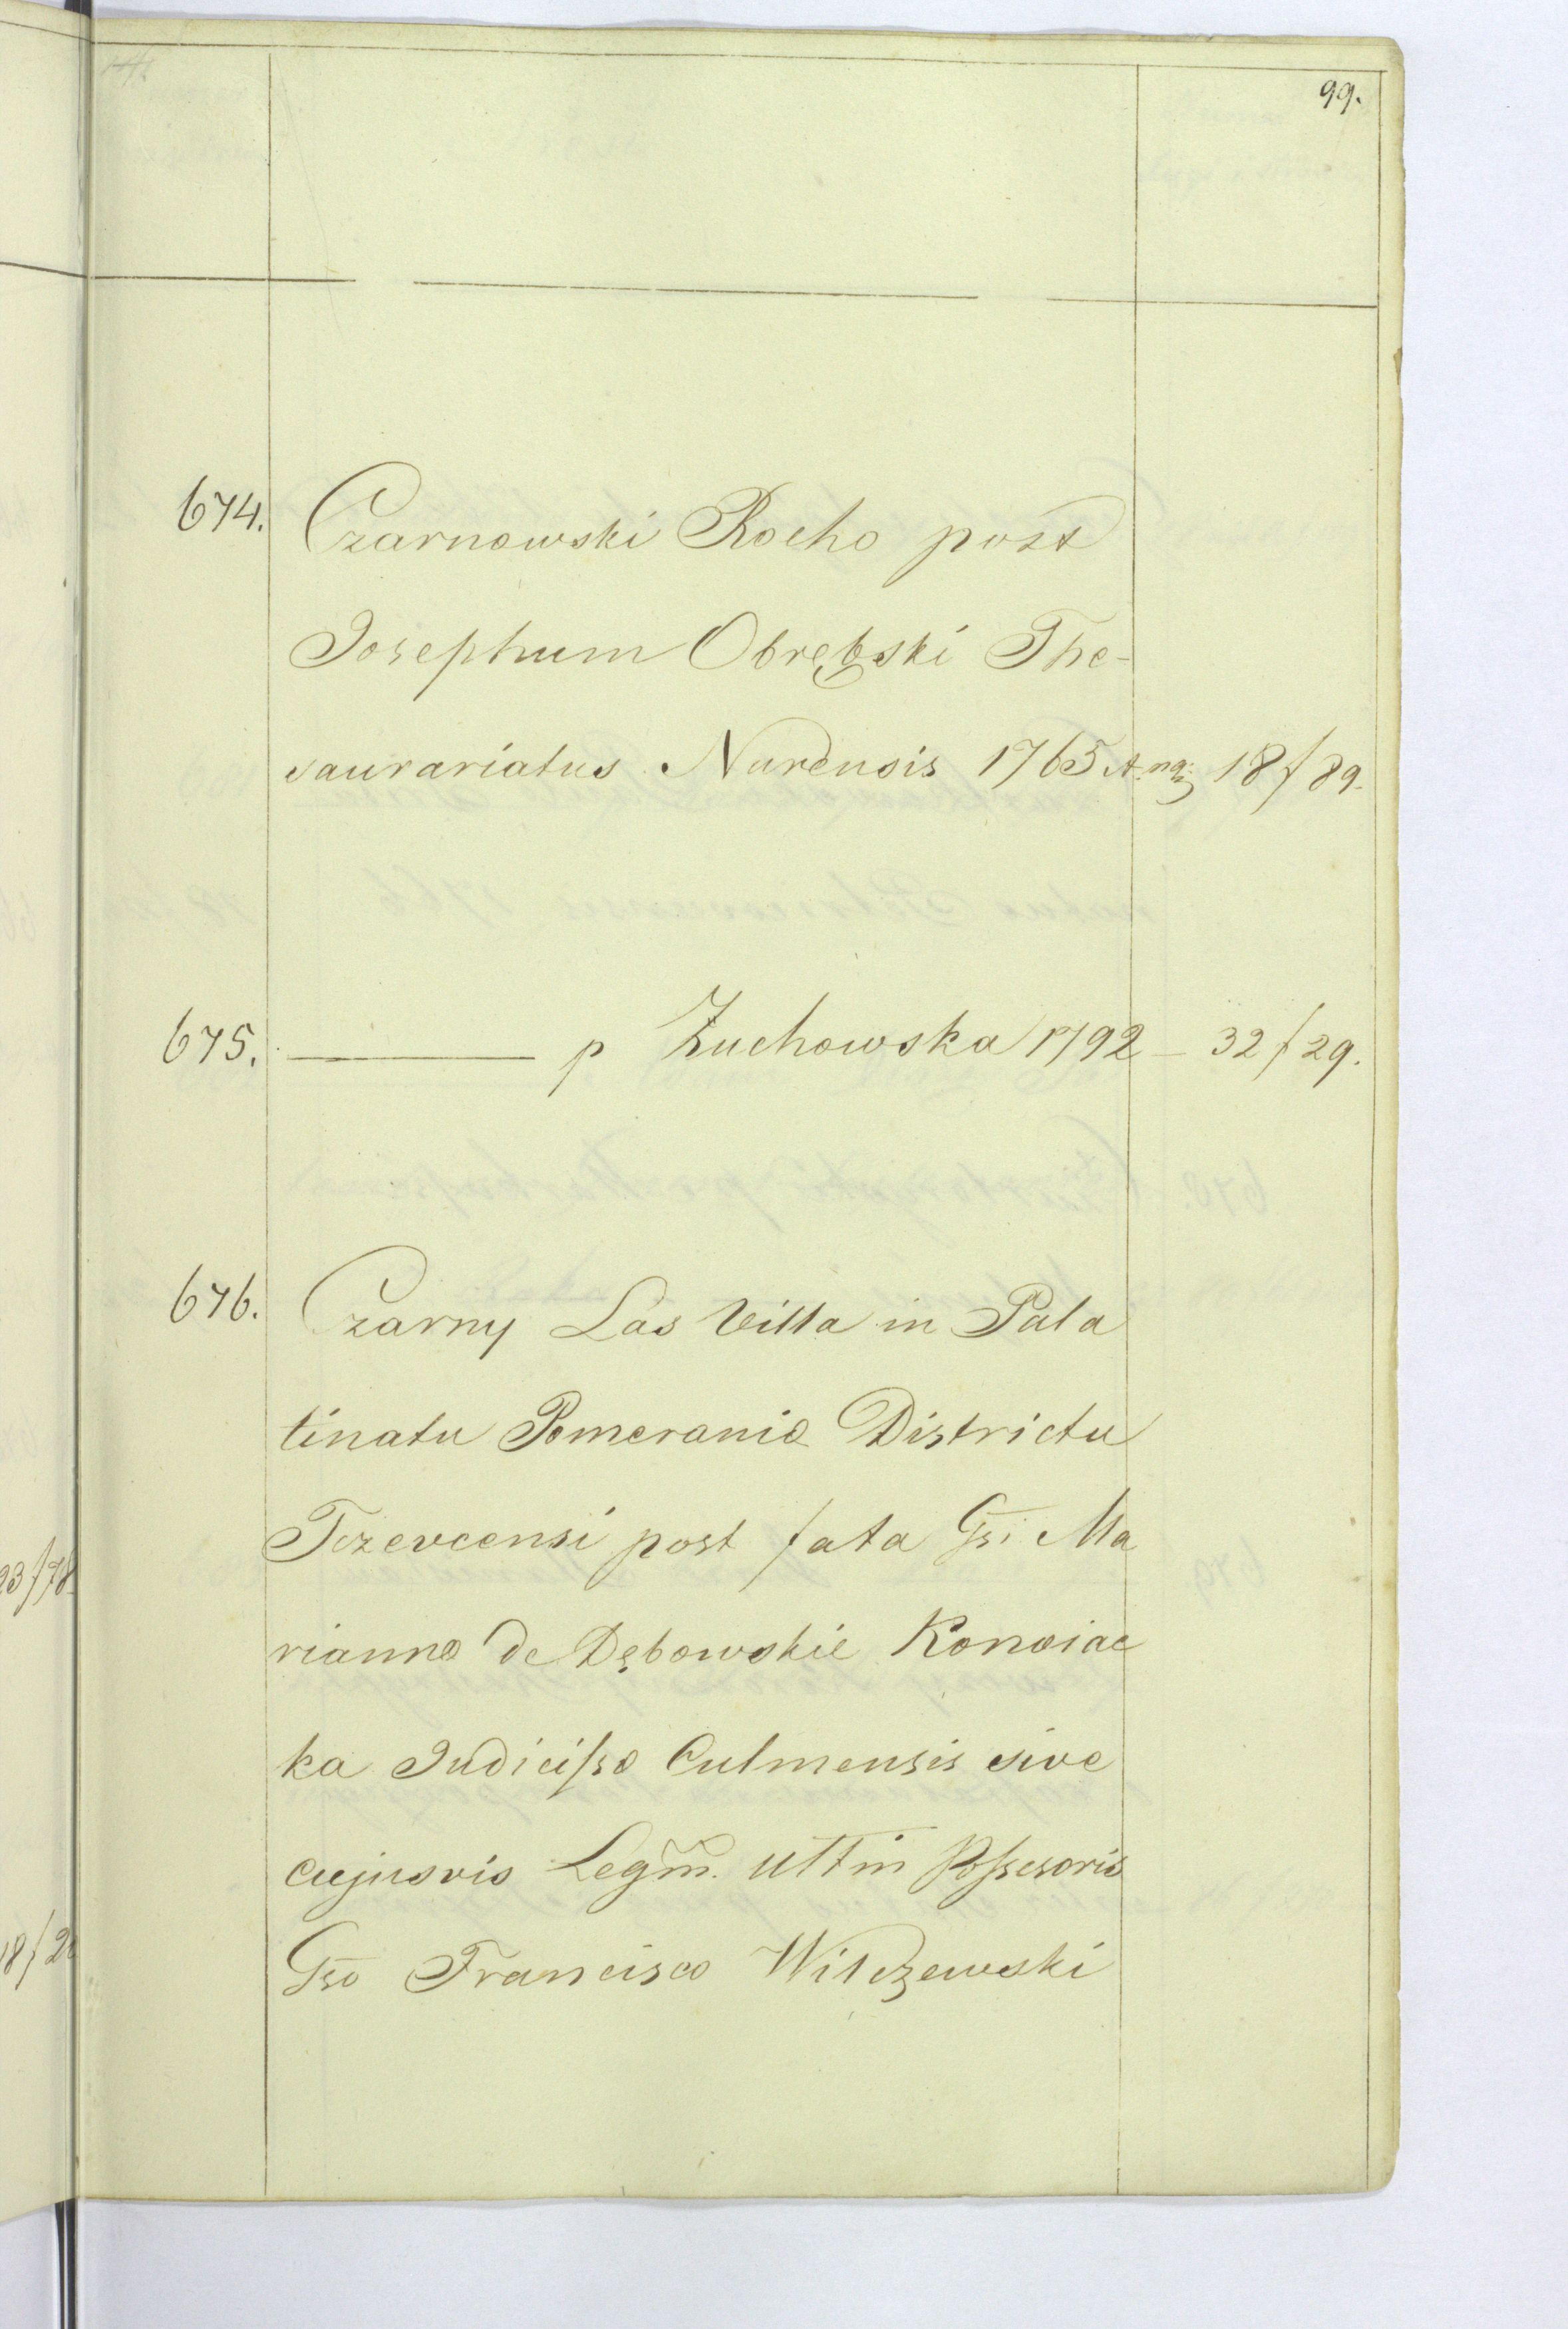 99.
674. Czarnowski Rocho post
Josephum Obrębski The-
saurariatus Nurensis 1765 18/89.
675. ——— p Zuchowska 1792 – 32/29.
676. Czarny Las Villa in Pala
tinatu Pomeraniæ Districtu
Tczevcensi post fata Gsi Ma
riannæ de Dębowskie Konoiac
ka Judicißæ Culmensis sive
cujusvis Legm. ultim Poßesoris
Gso Francisco Wilczewski
23/78
18/2